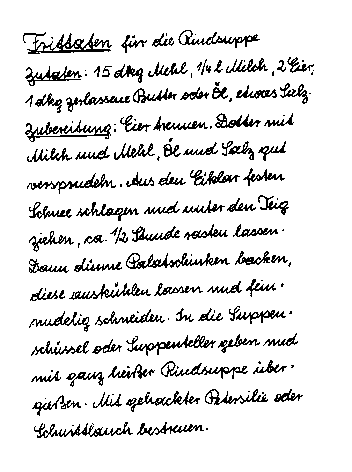 Frittaten für die Rindsuppe
Zutaten: 15 dkg Mehl, 1/4 l Milch, 2 Eier,
1 dkg zerlassene Butter oder Öl, etwas Salz.
Zubereitung: Eier trennen. Dotter mit
Milch und Mehl, Öl und Salz gut
versprudeln. Aus den Eiklar festen
Schnee schlagen und unter den Teig
ziehen, ca. 1/2 Stunde rasten lassen.
Dann dünne Palatschinken backen,
diese auskühlen lassen und fein-
nudelig schneiden. In die Suppen-
schüssel oder Suppenteller geben und
mit ganz heißer Rindsuppe über-
gießen. Mit gehackter Petersilie oder
Schnittlauch bestreuen.